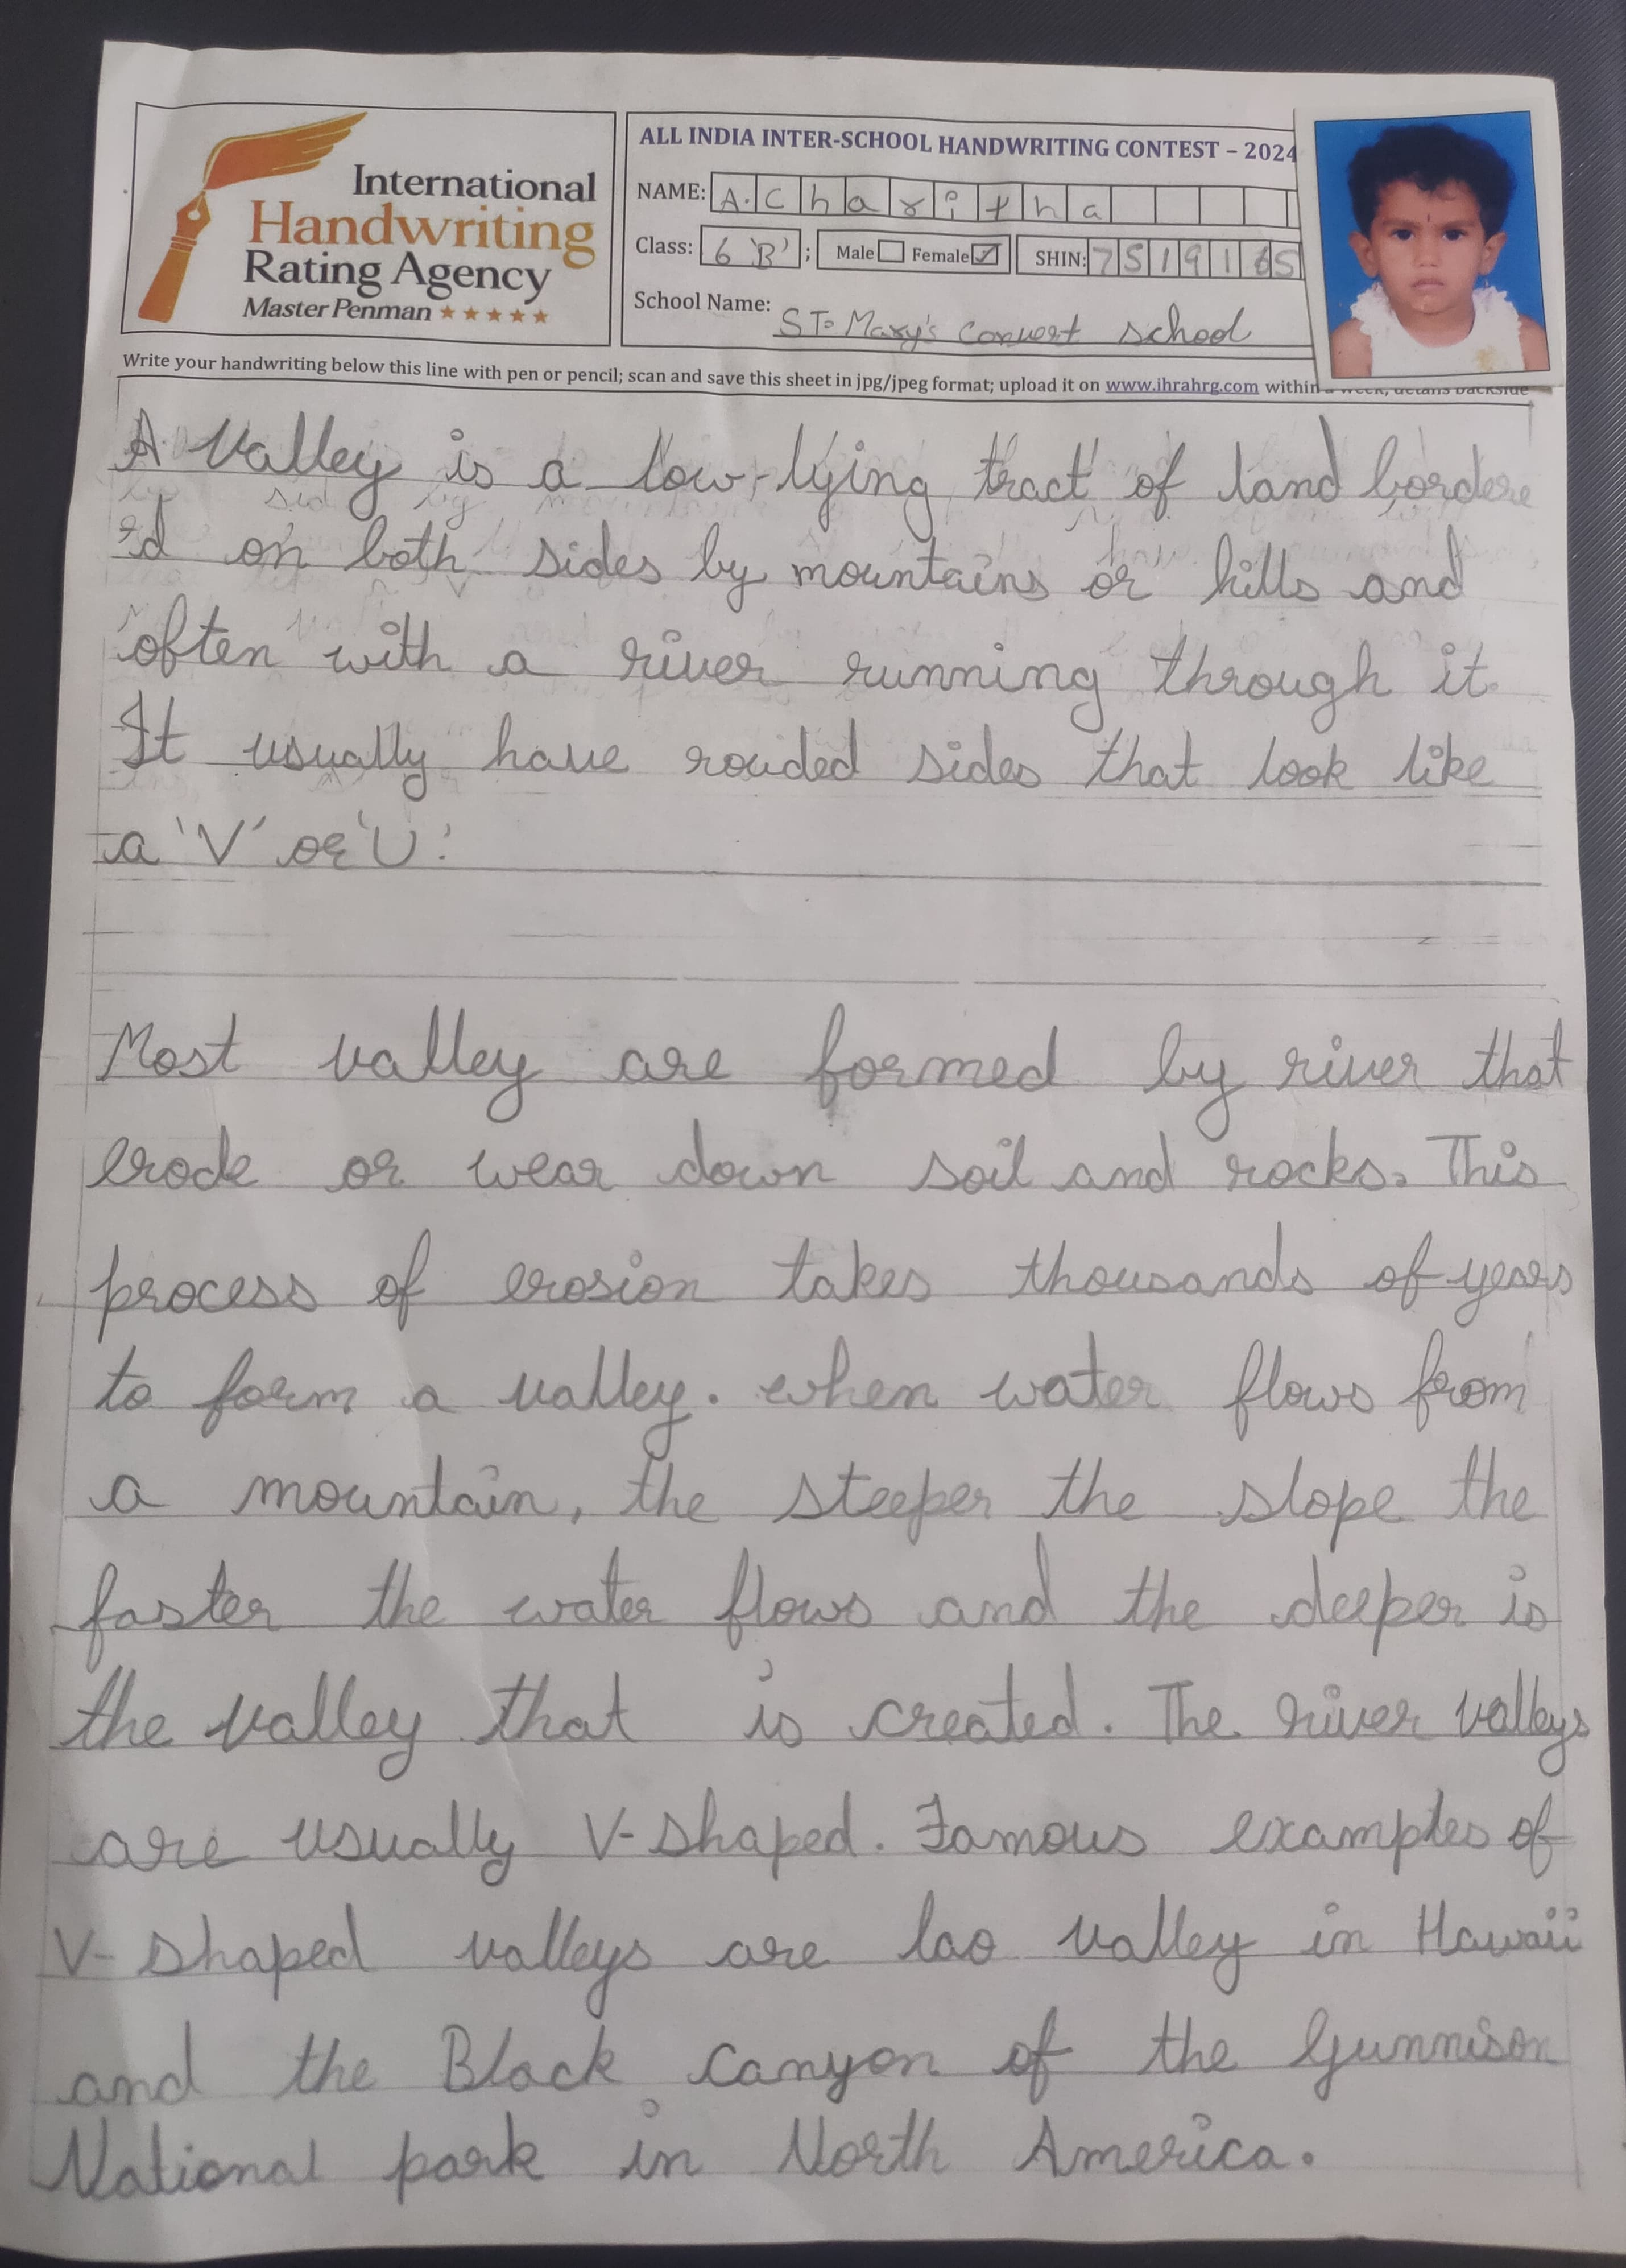 International
Handwriting
Rating Agency
Master Penman ★★★★★
ALL INDIA INTER-SCHOOL HANDWRITING CONTEST – 2024
NAME: A. Charitha
Class: 6 'B' ; Male Female ✓ SHIN: 7519165
School Name: ST. Mary's convert school
Write your handwriting below this line with pen or pencil; scan and save this sheet in jpg/jpeg format; upload it on www.ihrahrg.com within a week, details backside
A valley is a low-lying tract of land bordere
ed on both sides by mountains or hills and
often with a river running through it.
It usually have rouded sides that look like
a 'V' or 'U'.
Most valley are formed by river that
erode or wear down soil and rocks. This
process of erosion takes thousands of years
to form a valley. when water flows from
a mountain, the steeper the slope the
faster the water flows and the deeper is
the valley that is created. The river valleys
are usually V-shaped. Famous examples of
V-shaped valleys are lao valley in Hawaii
and the Black canyon of the Gunnison
National park in North America.